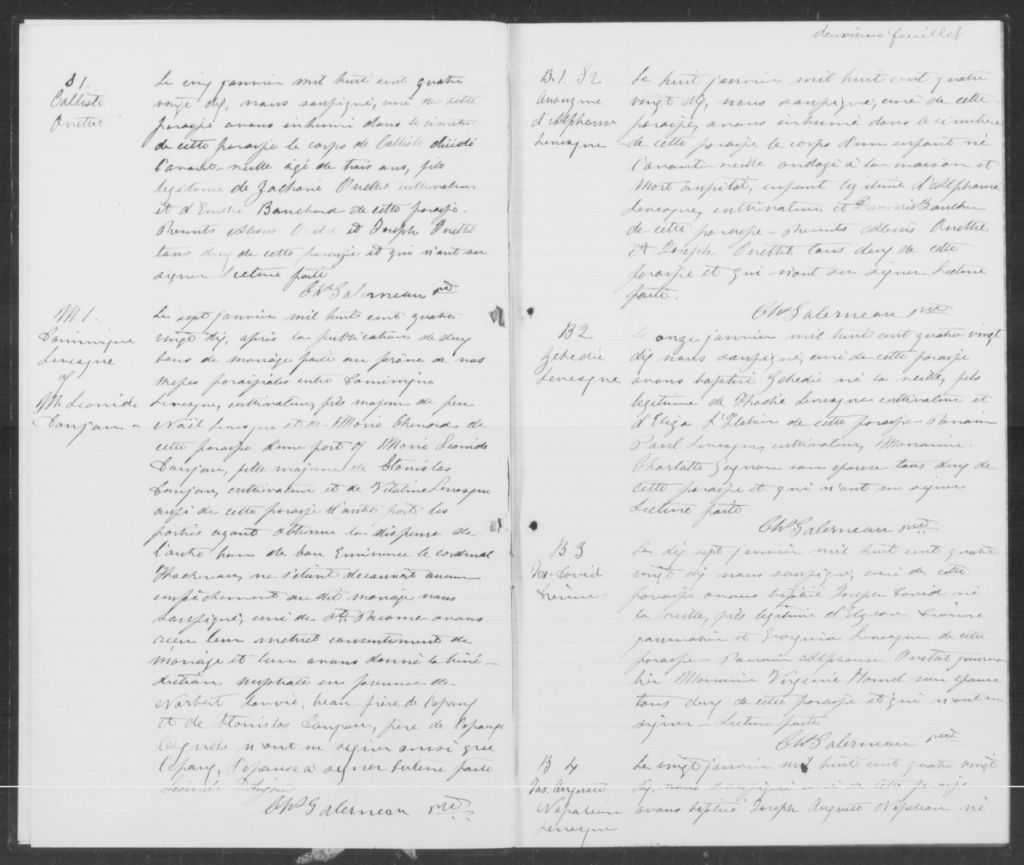 S 1.
Calliste
Ouellet
Le cinq janvier mil huit cent quatre
vingt dix, nous soussigné, curé de cette
paroisse avons inhumé dans le cimetière
de cette paroisse le corps de Calliste décédé
l'avant-veille agé de trois ans, fils
legitime de Zacharie Ouellet cultivateur
et d'Emelie Bouchard de cette paroisse.
Presents et Joseph Ouellet
tous deux de cette paroisse et qui n'ont su
signer Lecture faite
Chs Galerneau ptre
M. 1.
Dominique
Levesque
&
M. Leonide
Donjon
Le sept janvier mil huit cent quatre
vingt dix, après la publication de deux
bans de mariage faite au prône de nos
messes paroissiales entre Dominique
Levesque, cultivateur, fils majeur de feu
Noël Levesque et de Marie Chenard de
cette paroisse d'une part & Marie Leonide
Donjon, fille majeure de Stanislas
Donjon, cultivateur et de Vitaline Levesque
aussi de cette paroisse d'autre part, les
parties ayant obtenu la dispense de
l'autre ban de Son Eminence le cardinal
Taschereau, ne s'étant découvert aucun
empêchement au dit mariage nous
soussigné, curé de avons
reçu leur mutuel consentement de
mariage et leur avons donné la béné-
diction nuptiale en presence de
Norbert beau frère de l'epoux
et de Stanislas Donjon, père de l'epouse
lesquels n'ont su signer ainsi que
l'epoux, l'epouse a signé Lecture faite
Leonide Donjon
Chs Galerneau ptre
deuxième feuillet
B. 1. S 2
Anonyme
d'Alphonse
Levesque
Le huit janvier mil huit cent quatre
vingt dix, nous soussigné, curé de cette
paroisse, avons inhumé dans le cimetière
de cette paroisse le corps d'un enfant né
l'avant veille ondoyé à la maison et
mort aussitôt, enfant legitime d'Alphonse
Levesque, cultivateur et
de cette paroisse - Presents Ouellet
et Joseph Ouellet tous deux de cette
paroisse et qui n'ont su signer. Lecture
faite.
Chs Galerneau ptre
B 2
Zebedie
Levesque
Le onze janvier mil huit cent quatre vingt
dix nous soussigné, curé de cette paroisse
avons baptisé Zebedie né la veille, fils
legitime de Levesque cultivateur et
d'Eliza de cette paroisse - Parrain
Paul Levesque, cultivateur, Marraine
Charlotte Gagnon son epouse tous deux de
cette paroisse et qui n'ont su signer
Lecture faite
Chs Galerneau ptre
B 3
Jos. David
Le dix sept janvier mil huit cent quatre
vingt dix nous soussigné, curé de cette
paroisse avons baptisé Joseph David né
la veille, fils legitime d'Elzear
journalier et Levesque de cette
paroisse - Parrain Alphonse Ouellet journa
lier Marraine Virginie son epouse
tous deux de cette paroisse et qui n'ont su
signer - Lecture faite
Chs Galerneau ptre
B 4
Jos. Auguste
Napoleon
Levesque
Le vingt janvier mil huit cent quatre vingt
dix, nous soussigné curé de cette paroisse
avons baptisé Joseph Auguste Napoleon né